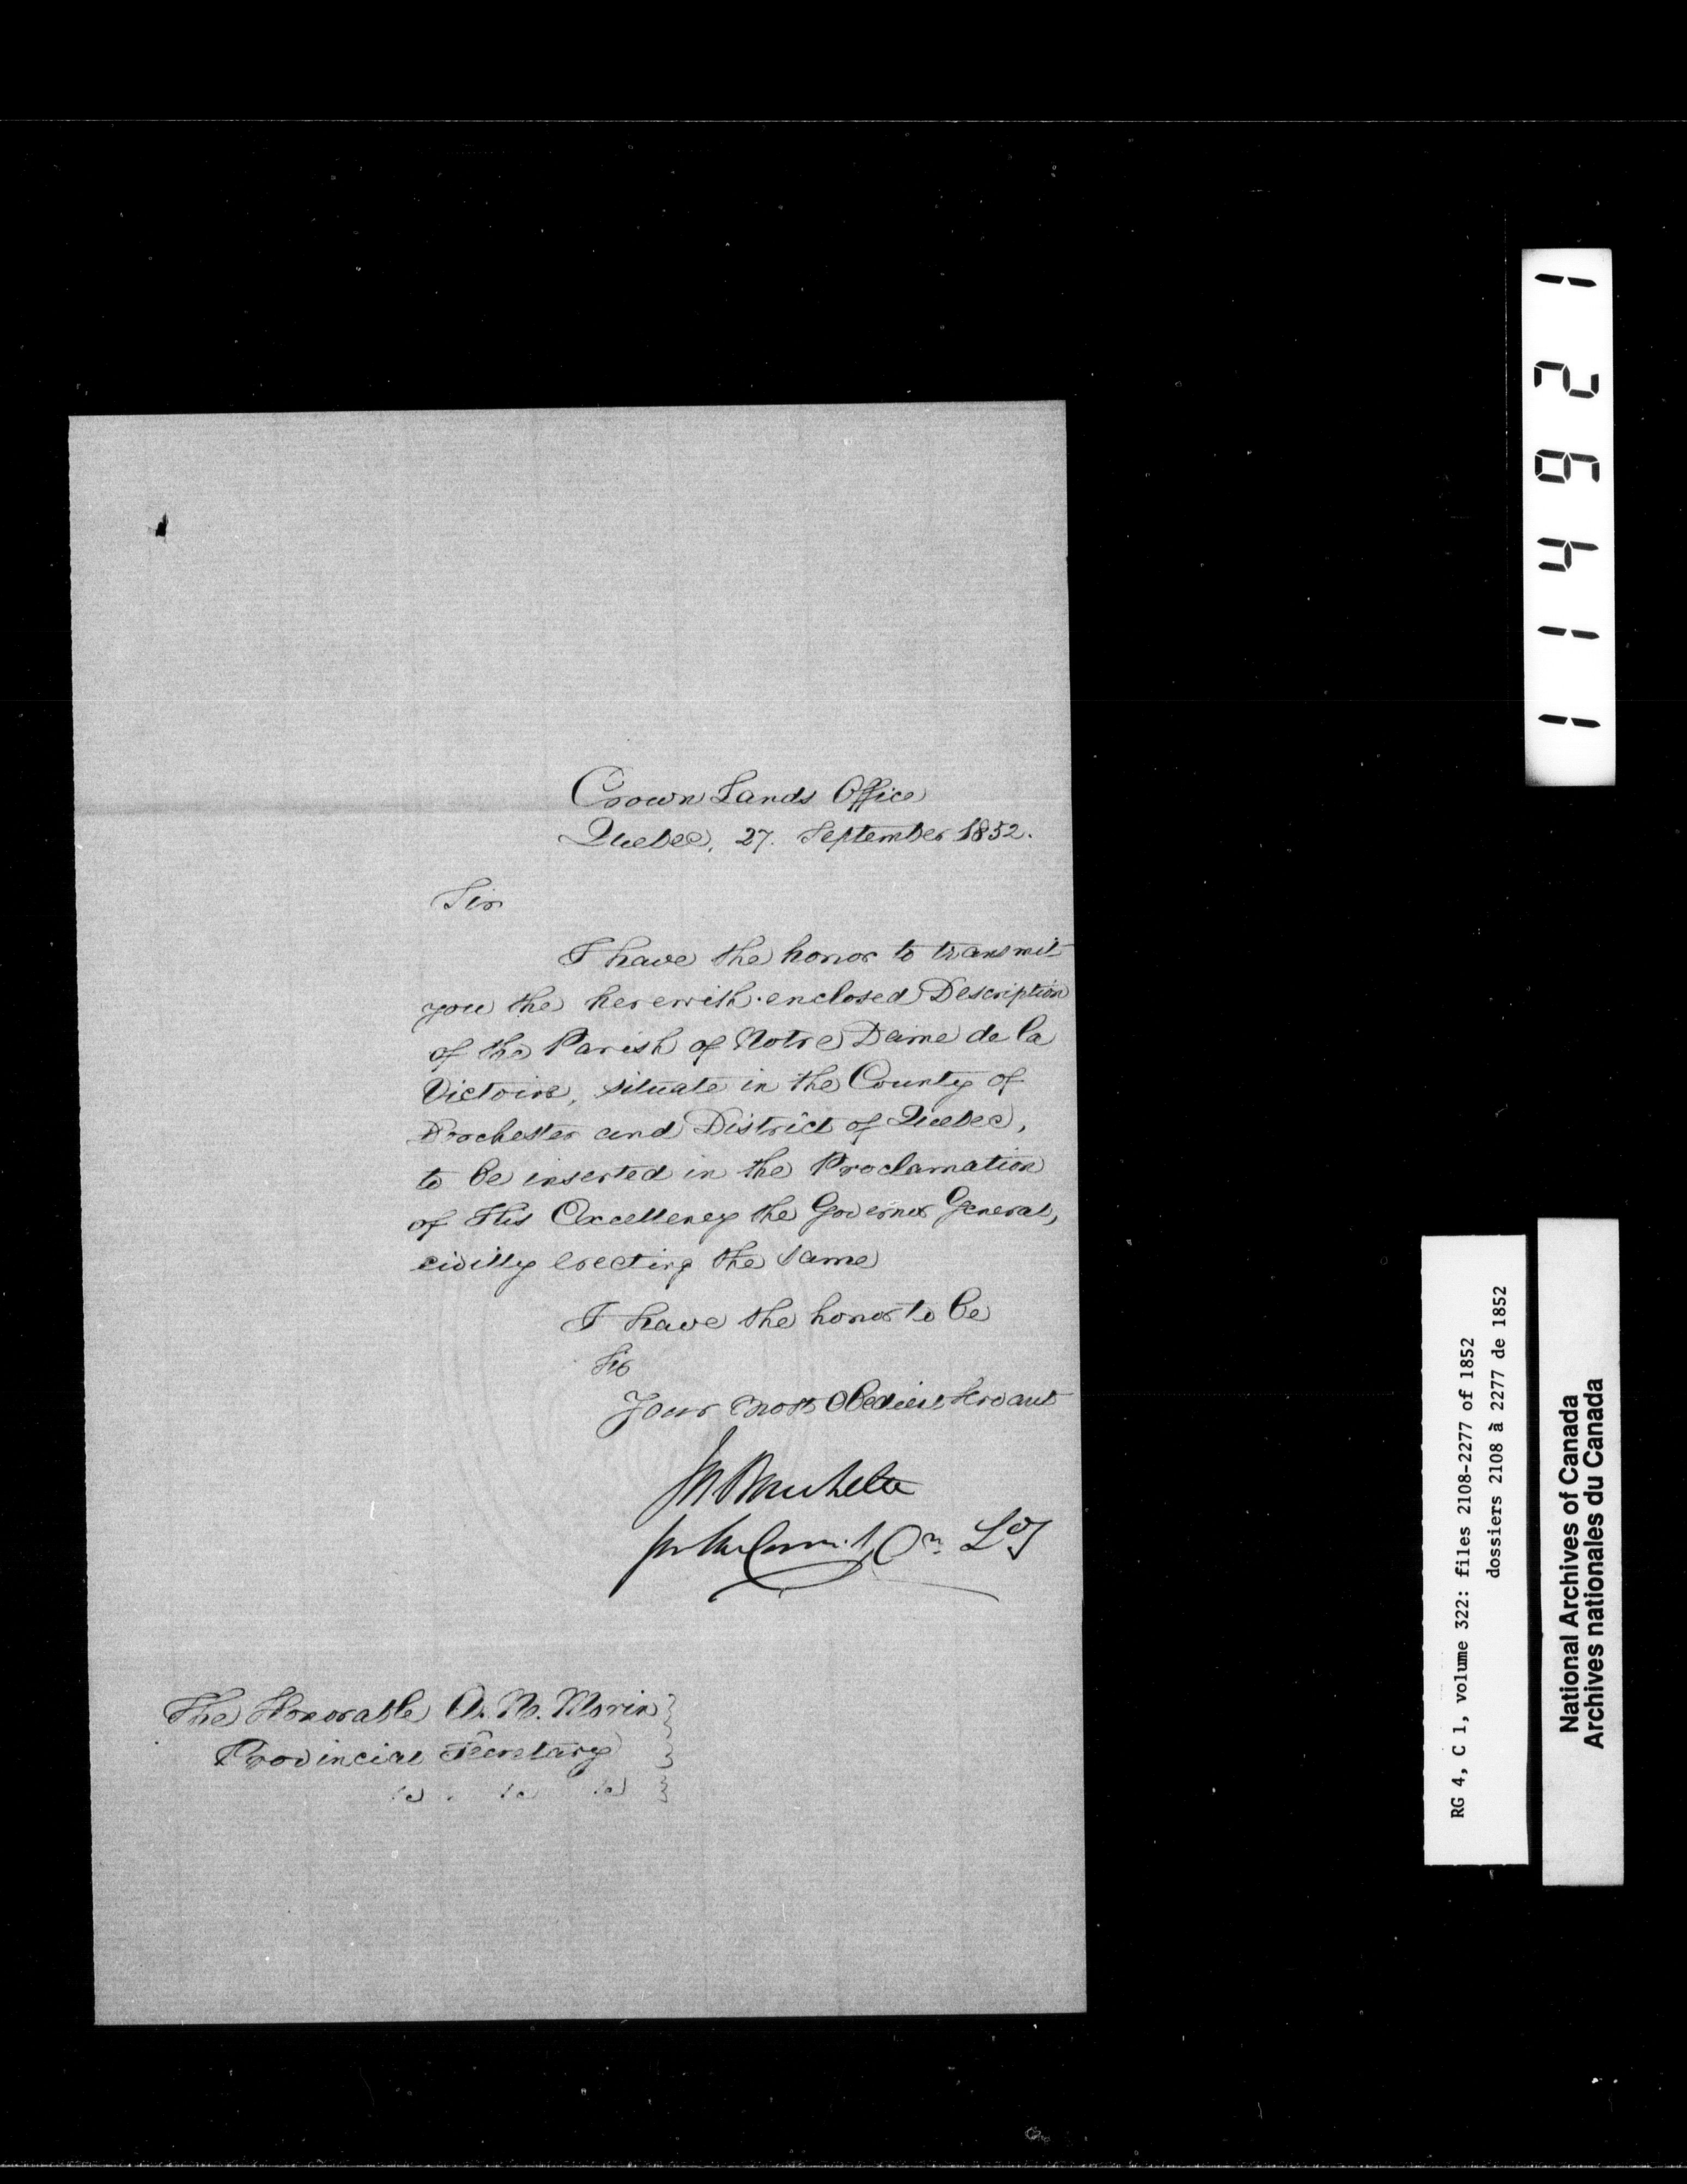 Crown Lands Office
Quebec, 27. September 1852.
Sir
I have the honor to transmit
you the herewith enclosed Description
of the Parish of Notre Dame de la
Victoire, situate in the County of
Dorchester and District of Quebec,
to be inserted in the Proclamation
of His Excellency the Governor General,
civilly erecting the same
I have the honor to be
Sir
Your most Obedient Servant
Bouchette
The Honorable A. N. Morin
Provincial Secretary
114621
RG 4, C 1, volume 322: files 2108-2277 of 1852
dossiers 2108 à 2277 de 1852
National Archives of Canada
Archives nationales du Canada